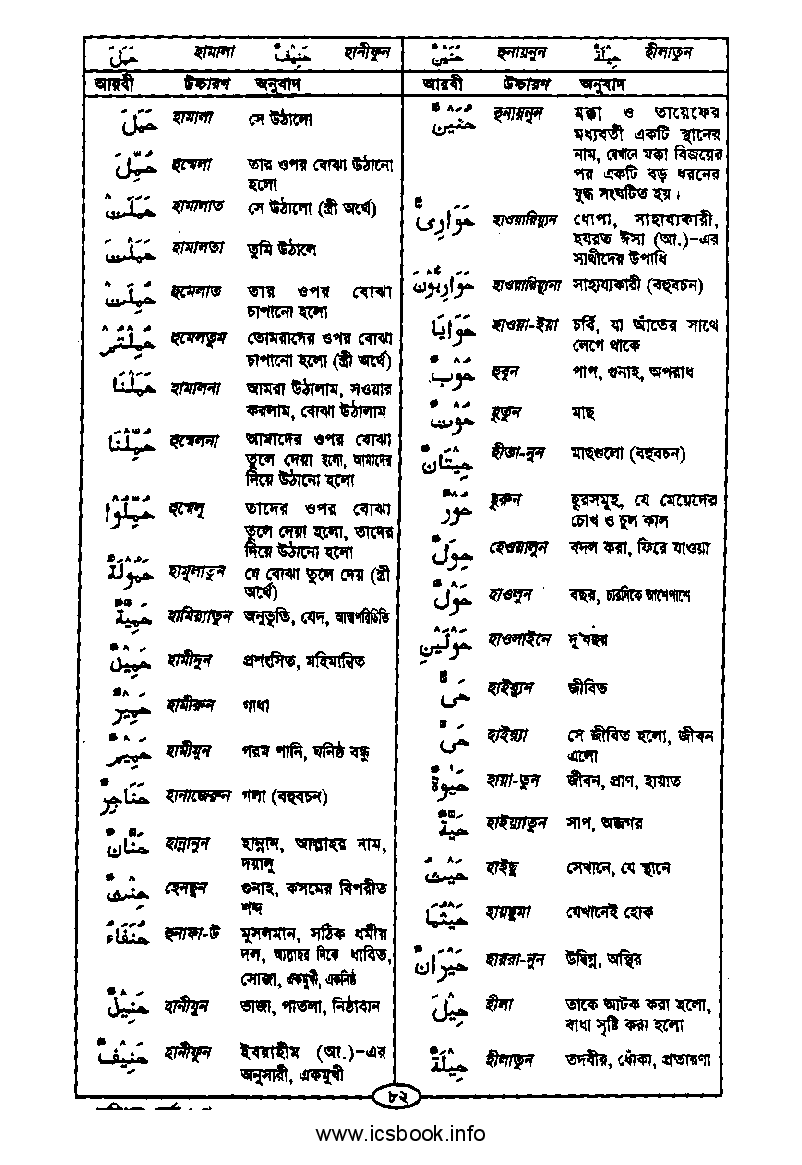 حَمَلَ হামালা حَنِيْفٌ হানীফুন
আরবী উচ্চারণ অনুবাদ
حَمَلَ হামালা সে উঠালো
حُمِّلَ হুম্মেলা তার ওপর বোঝা উঠানো
হলো
حَمَلَتْ হামালাত সে উঠালো (স্ত্রী অর্থে)
حَمَلْتَ হামালতা তুমি উঠালে
حُمِلَتْ হুমেলাত তার ওপর বোঝা
চাপানো হলো
حُمِّلْتُمْ হুমেলতুম তোমাদের ওপর বোঝা
চাপানো হলো (স্ত্রী অর্থে)
حَمَلْنَا হামালনা আমরা উঠালাম, সওয়ার
করলাম, বোঝা উঠালাম
حُمِّلْنَا হুম্মেলনা আমাদের ওপর বোঝা
তুলে দেয়া হলো, আমাদের
দিয়ে উঠানো হলো
حُمِّلُوْا হুম্মেলু তাদের ওপর বোঝা
তুলে দেয়া হলো, তাদের
দিয়ে উঠানো হলো
حَمُوْلَةٌ হামূলাতুন যে বোঝা তুলে দেয় (স্ত্রী
অর্থে)
حَمِيَّةٌ হামিয়্যাতুন অনুভূতি, যেদ, আত্মপরিচিতি
হামীদুন প্রশংসিত, মহিমান্বিত
حَمِيْرٌ হামীরুন গাধা
হামীমুন গরম পানি, ঘনিষ্ঠ বন্ধু
حَنَاجِرٌ হানাজেরুন গলা (বহুবচন)
حَنَّانٌ হান্নানুন হান্নান, আল্লাহর নাম,
দয়ালু
حِنْثٌ হেনছুন গুনাহ, কসমের বিপরীত
শব্দ
حُنَفَاءُ হুনাফা-উ মুসলমান, সঠিক ধর্মীয়
দল, আল্লাহর দিকে ধাবিত,
সোজা, একমুখী, একনিষ্ঠ
হানীযুন তাজা, পাতলা, নিষ্ঠাবান
حَنِيْفٌ হানীফুন ইবরাহীম (আ.)-এর
অনুসারী, একমুখী
حُنَيْنٌ হুনায়নুন حِيْلَةٌ হীলাতুন
আরবী উচ্চারণ অনুবাদ
حُنَيْنٌ হুনায়নুন মক্কা ও তায়েফের
মধ্যবর্তী একটি স্থানের
নাম, যেখানে মক্কা বিজয়ের
পর একটি বড় ধরনের
যুদ্ধ সংঘটিত হয়।
حَوَارِىٌّ হাওয়ারিয়্যুন ধোপা, সাহায্যকারী,
হযরত ঈসা (আ.)-এর
সাথীদের উপাধি
حَوَارِيُّوْنَ হাওয়ারিয়্যুনা সাহায্যকারী (বহুবচন)
حَوَايَا হাওয়া-ইয়া চর্বি, যা আঁতের সাথে
লেগে থাকে
حُوْبٌ হুবুন পাপ, গুনাহ, অপরাধ
حُوْتٌ হুতুন মাছ
حِيْتَانٌ হীতা-নুন মাছগুলো (বহুবচন)
حُوْرٌ হুরুন হূরসমূহ, যে মেয়েদের
চোখ ও চুল কাল
حِوَلٌ হেওয়ালুন বদল করা, ফিরে যাওয়া
حَوْلٌ হাওলুন বছর, চারদিকে আশেপাশে
حَوْلَيْنِ হাওলাইনে দু'বছর
حَىٌّ হাইয়্যুন জীবিত
حَىَّ হাইয়্যা সে জীবিত হলো, জীবন
এলো
حَيٰوةٌ হায়া-তুন জীবন, প্রাণ, হায়াত
حَيَّةٌ হাইয়্যাতুন সাপ, অজগর
حَيْثُ হাইছু সেখানে, যে স্থানে
حَيْثُمَا হায়ছুমা যেখানেই হোক
حَيْرَانٌ হায়রা-নুন উদ্বিগ্ন, অস্থির
حِيْلَ হীলা তাকে আটক করা হলো,
বাধা সৃষ্টি করা হলো
حِيْلَةٌ হীলাতুন তদবীর, ধোঁকা, প্রতারণা
৮২
www.icsbook.info